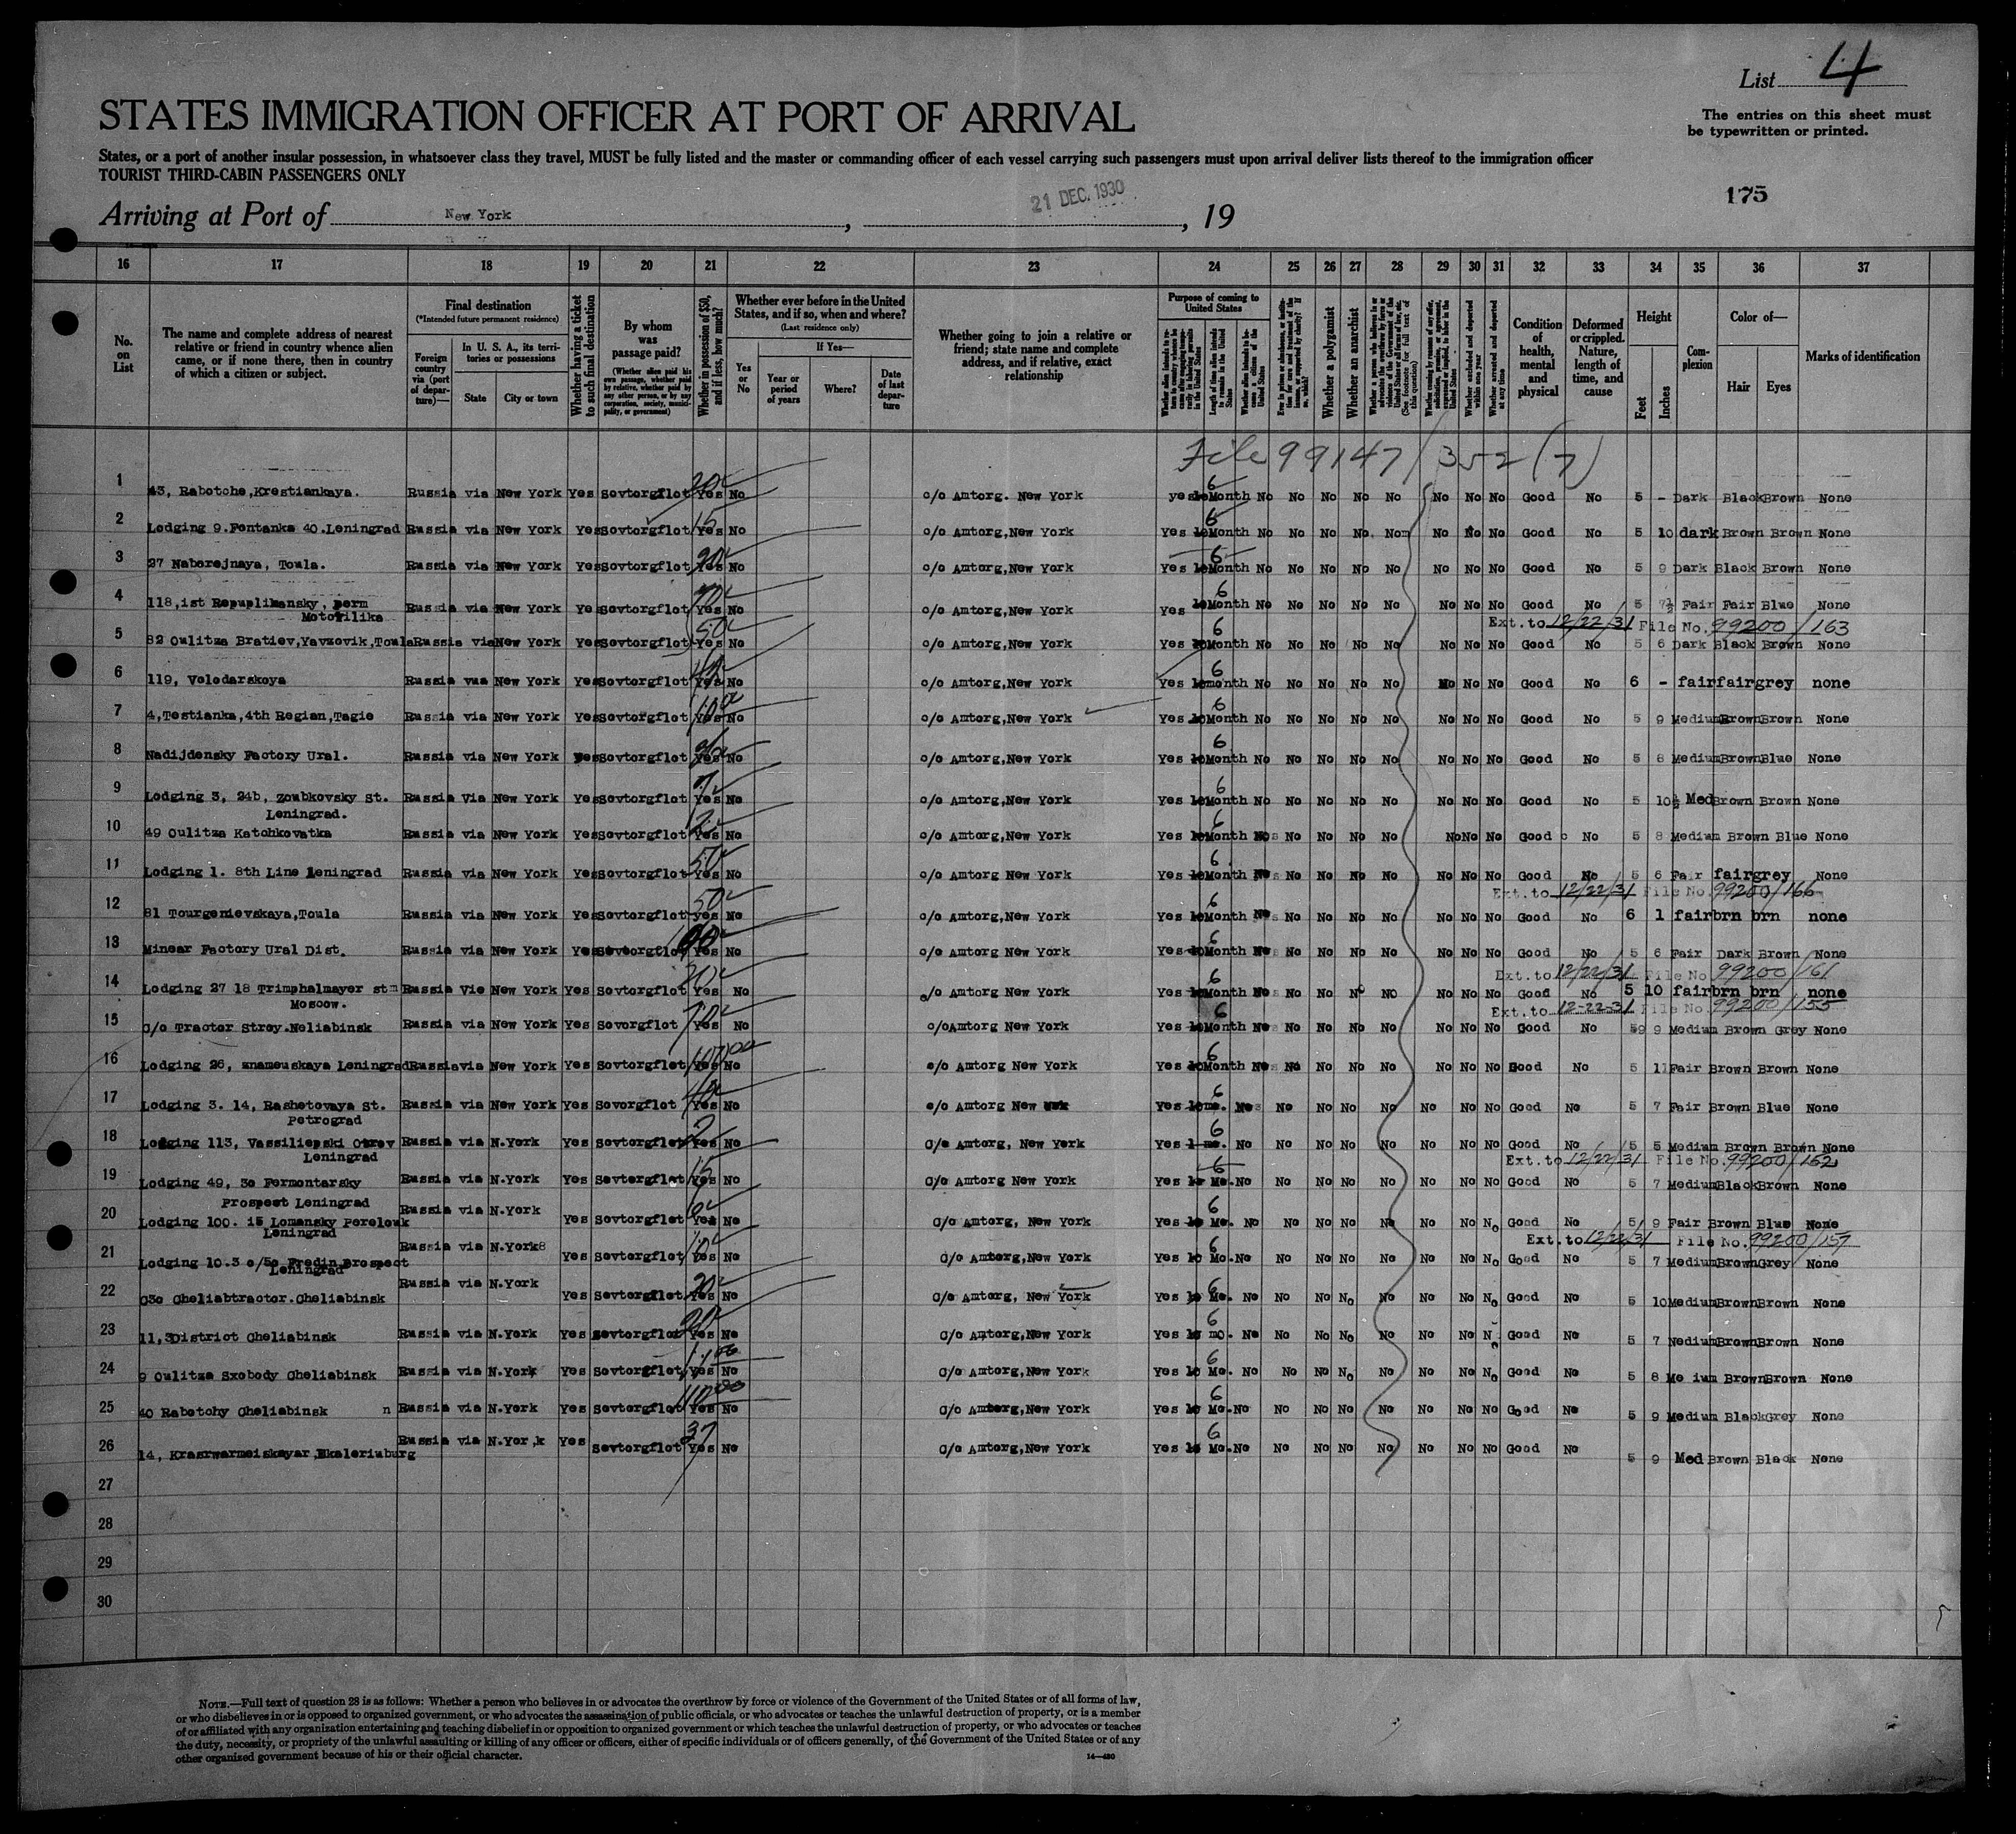 List 4
STATES IMMIGRATION OFFICER AT PORT OF ARRIVAL
The entries on this sheet must
be typewritten or printed.
States, or a port of another insular possession, in whatsoever class they travel, MUST be fully listed and the master or commanding officer of each vessel carrying such passengers must upon arrival deliver lists thereof to the immigration officer
TOURIST THIRD-CABIN PASSENGERS ONLY
175
Arriving at Port of New York, 21 DEC. 1930, 19
16 17 18 19 20 21 22 23 24 25 26 27 28 29 30 31 32 33 34 35 36 37
No. on List
The name and complete address of nearest relative or friend in country whence alien came, or if none there, then in country of which a citizen or subject.
Final destination
(*Intended future permanent residence)
Foreign country via (port of departure)—
In U. S. A., its territories or possessions
State
City or town
Whether having a ticket to such final destination
By whom was passage paid?
(Whether alien paid his own passage, whether paid by relative, whether paid by any other person, or by any corporation, society, municipality, or government)
Whether in possession of $50, and if less, how much?
Whether ever before in the United States, and if so, when and where?
(Last residence only)
Yes or No
If Yes—
Year or period of years
Where?
Date of last departure
Whether going to join a relative or friend; state name and complete address, and if relative, exact relationship
Purpose of coming to United States
Whether a polygamist
Whether an anarchist
Condition of health, mental and physical
Deformed or crippled. Nature, length of time, and cause
Height
Feet
Inches
Complexion
Color of—
Hair
Eyes
Marks of identification
File 99147/352 (7)
1 43, Rabotche,Krestiankaya. Russia via New York Yes Sovtorgflot Yes No c/o Amtorg. New York yes 6 Month No No No No No No No No Good No 5 - Dark Black Brown None
2 Lodging 9.Fontanka 40.Leningrad Russia via New York Yes Sovtorgflot 15 Yes No c/o Amtorg,New York Yes 6 Month No No No No Non No No No Good No 5 10 dark Brown Brown None
3 27 Naberejnaya, Toula. Russia via New York Yes Sovtorgflot Yes No c/o Amtorg,New York Yes 6 Month No No No No No No No No Good No 5 9 Dark Black Brown None
4 118,ist Repuplikansky, perm Russia via New York Yes Sovtorgflot Yes No c/o Amtorg,New York Yes 6 Month No No No No No No No No Good No 5 7½ Fair Fair Blue None
Motovilika
Ext.to 12/22/31 File No. 99200/163
5 82 Oulitza Bratiev,Yavzovik,Toula Russia via New York Yes Sovtorgflot 50 Yes No c/o Amtorg,New York Yes 6 Month No No No No No No No No Good No 5 6 Dark Black Brown None
6 119, Volodarskoya Russia vua New York Yes Sovtorgflot Yes No c/o Amtorg,New York Yes 6 month No No No No No No No No Good No 6 - fair fair grey none
7 4,Testianka,4th Regian,Tagie Russia via New York Yes Sovtorgflot Yes No c/o Amtorg,New York Yes 6 Month No No No No No No No No Good No 5 9 Medium Brown Brown None
8 Nadijdensky Factory Ural. Russia via New York Yes Sovtorgflot Yes No c/o Amtorg,New York Yes 6 Month No No No No No No No No Good No 5 8 Medium Brown Blue None
9 Lodging 3, 24b, Zoubkovsky St. Russia via New York Yes Sovtorgflot Yes No c/o Amtorg,New York Yes 6 Month No No No No No No No No Good No 5 10½ Med Brown Brown None
Leningrad.
10 49 Oulitza Katchkovatka Russia via New York Yes Sovtorgflot Yes No c/o Amtorg,New York Yes Month No No No No No No No Good No 5 8 Medium Brown Blue None
11 Lodging 1. 8th Line Leningrad Russia via New York Yes Sovtorgflot 50 Yes No c/o Amtorg,New York Yes 6 Month No No No No No No No Good No 5 6 Fair fair grey None
Ext.to 12/22/31 File No. 99200/166
12 81 Tourgenievskaya,Toula Russia via New York Yes Sovtorgflot 50 Yes No c/o Amtorg,New York Yes 6 Month No No No No No No No Good No 6 1 fair brn brn none
13 Minear Factory Ural Dist. Russia via New York Yes Sovtorgflot Yes No c/o Amtorg New York Yes 6 Month No No No No No No No Good No 5 6 Fair Dark Brown None
Ext.to 12/22/31 File No. 99200/161
14 Lodging 27 18 Trimphalmayer st Russia Vie New York Yes Sovtorgflot Yes No c/o Amtorg New York Yes 6 Month No No No No No No No Good No 5 10 fair brn brn none
Moscow.
Ext.to 12-22-31 File No. 99200/155
15 C/o Tractor Stroy.Neliabinsk Russia via New York Yes Sovorgflot Yes No c/oAmtorg New York Yes 6 Month No No No No No No No Good No 5 9 Medium Brown Grey None
16 Lodging 26, znameuskaya Leningrad Russia via New York Yes Sovtorgflot Yes No c/o Amtorg New York Yes 6 Month No No No No No No No Good No 5 11 Fair Brown Brown None
17 Lodging 3. 14, Rashetovaya St. Russia via New York Yes Sovorgflot Yes No c/o Amtorg New York Yes 6 mo. No No No No No No No Good No 5 7 Fair Brown Blue None
Petrograd
18 Lodging 113, Vassiliepski Otrov Russia via N.York Yes Sovtorgflot Yes No C/o Amtorg, New York Yes 6 mo. No No No No No No No No Good No 5 5 Medium Brown Brown None
Leningrad
Ext.to 12/22/31 File No. 99200/152
19 Lodging 49, 3o Fermontarsky Russia via N.York Yes Sovtorgflot 15 Yes No C/o Amtorg New York Yes 6 Mo. No No No No No No No No Good No 5 7 Medium Black Brown None
Prospect Leningrad
20 Lodging 100. i5 Lomansky Perelouk Russia via N.York Yes Sovtorgflot Yes No C/o Amtorg, New York Yes 6 Mo. No No No No No No No No Good No 5 9 Fair Brown Blue None
Leningrad
Ext.to 12/22/31 File No. 99200/157
21 Lodging 10.3 c/5o Fredin Prospect Russia via N.York8 Yes Sovtorgflot Yes No C/o Amtorg,New York Yes 6 Mo. No No No No No No No No Good No 5 7 Medium Brown Grey None
Leningrad
22 C3o Cheliabtractor.Cheliabinsk Russia via N.York Yes Sovtorgflot 20 Yes No C/o Amtorg, New York Yes 6 Mo. No No No No No No No No Good No 5 10 Medium Brown Brown None
23 11,3District Cheliabinsk Russia via N.York Yes Sovtorgflot 20 Yes No C/o Amtorg, New York Yes 6 mo. No No No No No No No No Good No 5 7 Medium Brown Brown None
24 9 Oulitza Sxobody Cheliabinsk Russia via N.York Yes Sovtorgflot Yes No C/o Amtorg,New York Yes 6 Mo. No No No No No No No No Good No 5 8 Me ium Brown Brown None
25 40 Rabotchy Cheliabinsk n Russia via N.York Yes Sovtorgflot Yes No C/o Amtorg,New York Yes 6 Mo. No No No No No No No No Good No 5 9 Medium Black Grey None
26 14, Krasrwarmeiskayar,Ekaleriuburg Russia via N.Yor,k Yes Sovtorgflot 37 Yes No C/o Amtorg,New York Yes 6 Mo. No No No No No No No No Good No 5 9 Med Brown Black None
27
28
29
30
NOTE.—Full text of question 28 is as follows: Whether a person who believes in or advocates the overthrow by force or violence of the Government of the United States or of all forms of law,
or who disbelieves in or is opposed to organized government, or who advocates the assassination of public officials, or who advocates or teaches the unlawful destruction of property, or is a member
of or affiliated with any organization entertaining and teaching disbelief in or opposition to organized government or which teaches the unlawful destruction of property, or who advocates or teaches
the duty, necessity, or propriety of the unlawful assaulting or killing of any officer or officers, either of specific individuals or of officers generally, of the Government of the United States or of any
other organized government because of his or their official character.
14—480